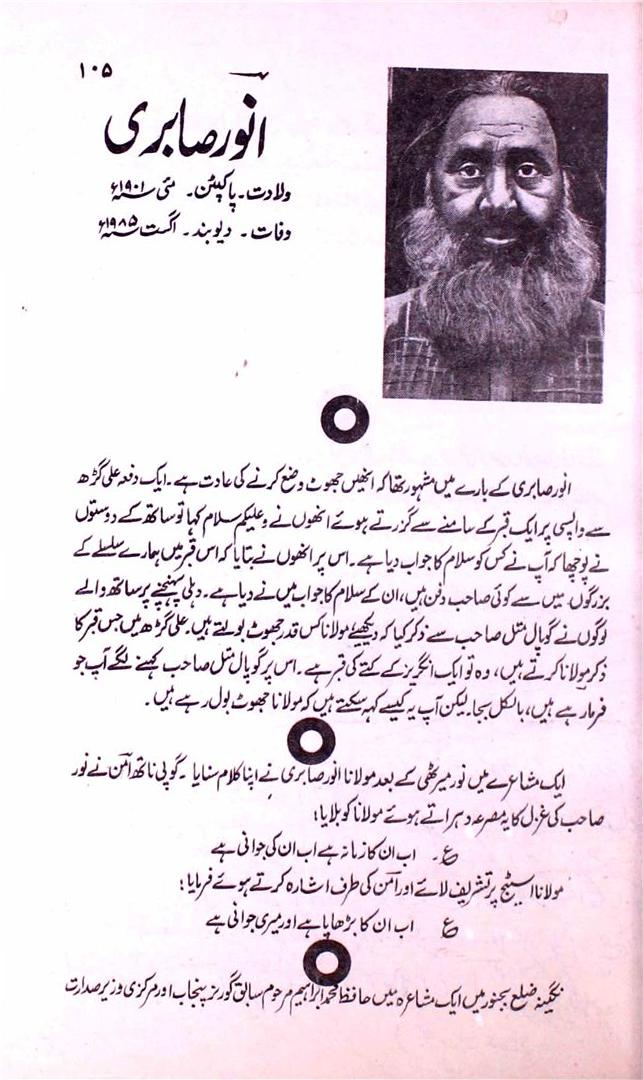 ۱۰۵
انور صابری
ولادت۔ پاکپٹن۔ مئی ۱۹۰۱ء
وفات۔ دیوبند۔ اگست ۱۹۸۵ء
انور صابری کے بارے میں مشہور تھا کہ انھیں جھوٹ وضع کرنے کی عادت ہے۔ ایک دفعہ علی گڑھ
سے واپسی پر ایک قبر کے سامنے سے گزرتے ہوئے انھوں نے وعلیکم سلام کہا تو ساتھ کے دوستوں
نے پوچھا کہ آپ نے کس کو سلام کا جواب دیا ہے۔ اس پر انھوں نے بتایا کہ اس قبر میں ہمارے سلسلے کے
بزرگوں میں سے کوئی صاحب دفن ہیں، ان کے سلام کا جواب میں نے دیا ہے۔ دہلی پہنچنے پر ساتھ والے
لوگوں نے گوپال متل صاحب سے ذکر کیا کہ دیکھیے مولانا کس قدر جھوٹ بولتے ہیں۔ علی گڑھ میں جس قبر کا
ذکر مولانا کرتے ہیں، وہ تو ایک انگریز کے کتے کی قبر ہے۔ اس پر گوپال متل صاحب کہنے لگے آپ جو
فرما رہے ہیں، بالکل بجا۔ لیکن آپ یہ کیسے کہہ سکتے ہیں کہ مولانا جھوٹ بول رہے ہیں۔
ایک مشاعرے میں نور میرٹھی کے بعد مولانا انور صابری نے اپنا کلام سنایا۔ گوپی ناتھ امن نے نور
صاحب کی غزل کا یہ مصرعہ دہراتے ہوئے مولانا کو بلایا؛
ع۔ اب ان کا زمانہ ہے اب ان کی جوانی ہے
مولانا اسٹیج پر تشریف لائے اور امن کی طرف اشارہ کرتے ہوئے فرمایا؛
ع اب ان کا بڑھاپا ہے اور میری جوانی ہے
نگینہ ضلع بجنور میں ایک مشاعرہ میں حافظ محمد ابراہیم مرحوم سابق گورنر پنجاب اور مرکزی وزیر صدارت